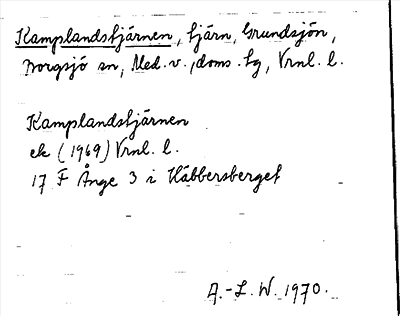 Kamplandstjärnen, tjärn, Grundsjön,
Borgsjö sn, Med. v., doms. tg, Vrnl. l.
Kamplandstjärnen
ek (1969) Vrnl. l.
17 F Ånge 3 i Käbbersberget
A.-L. W. 1970.